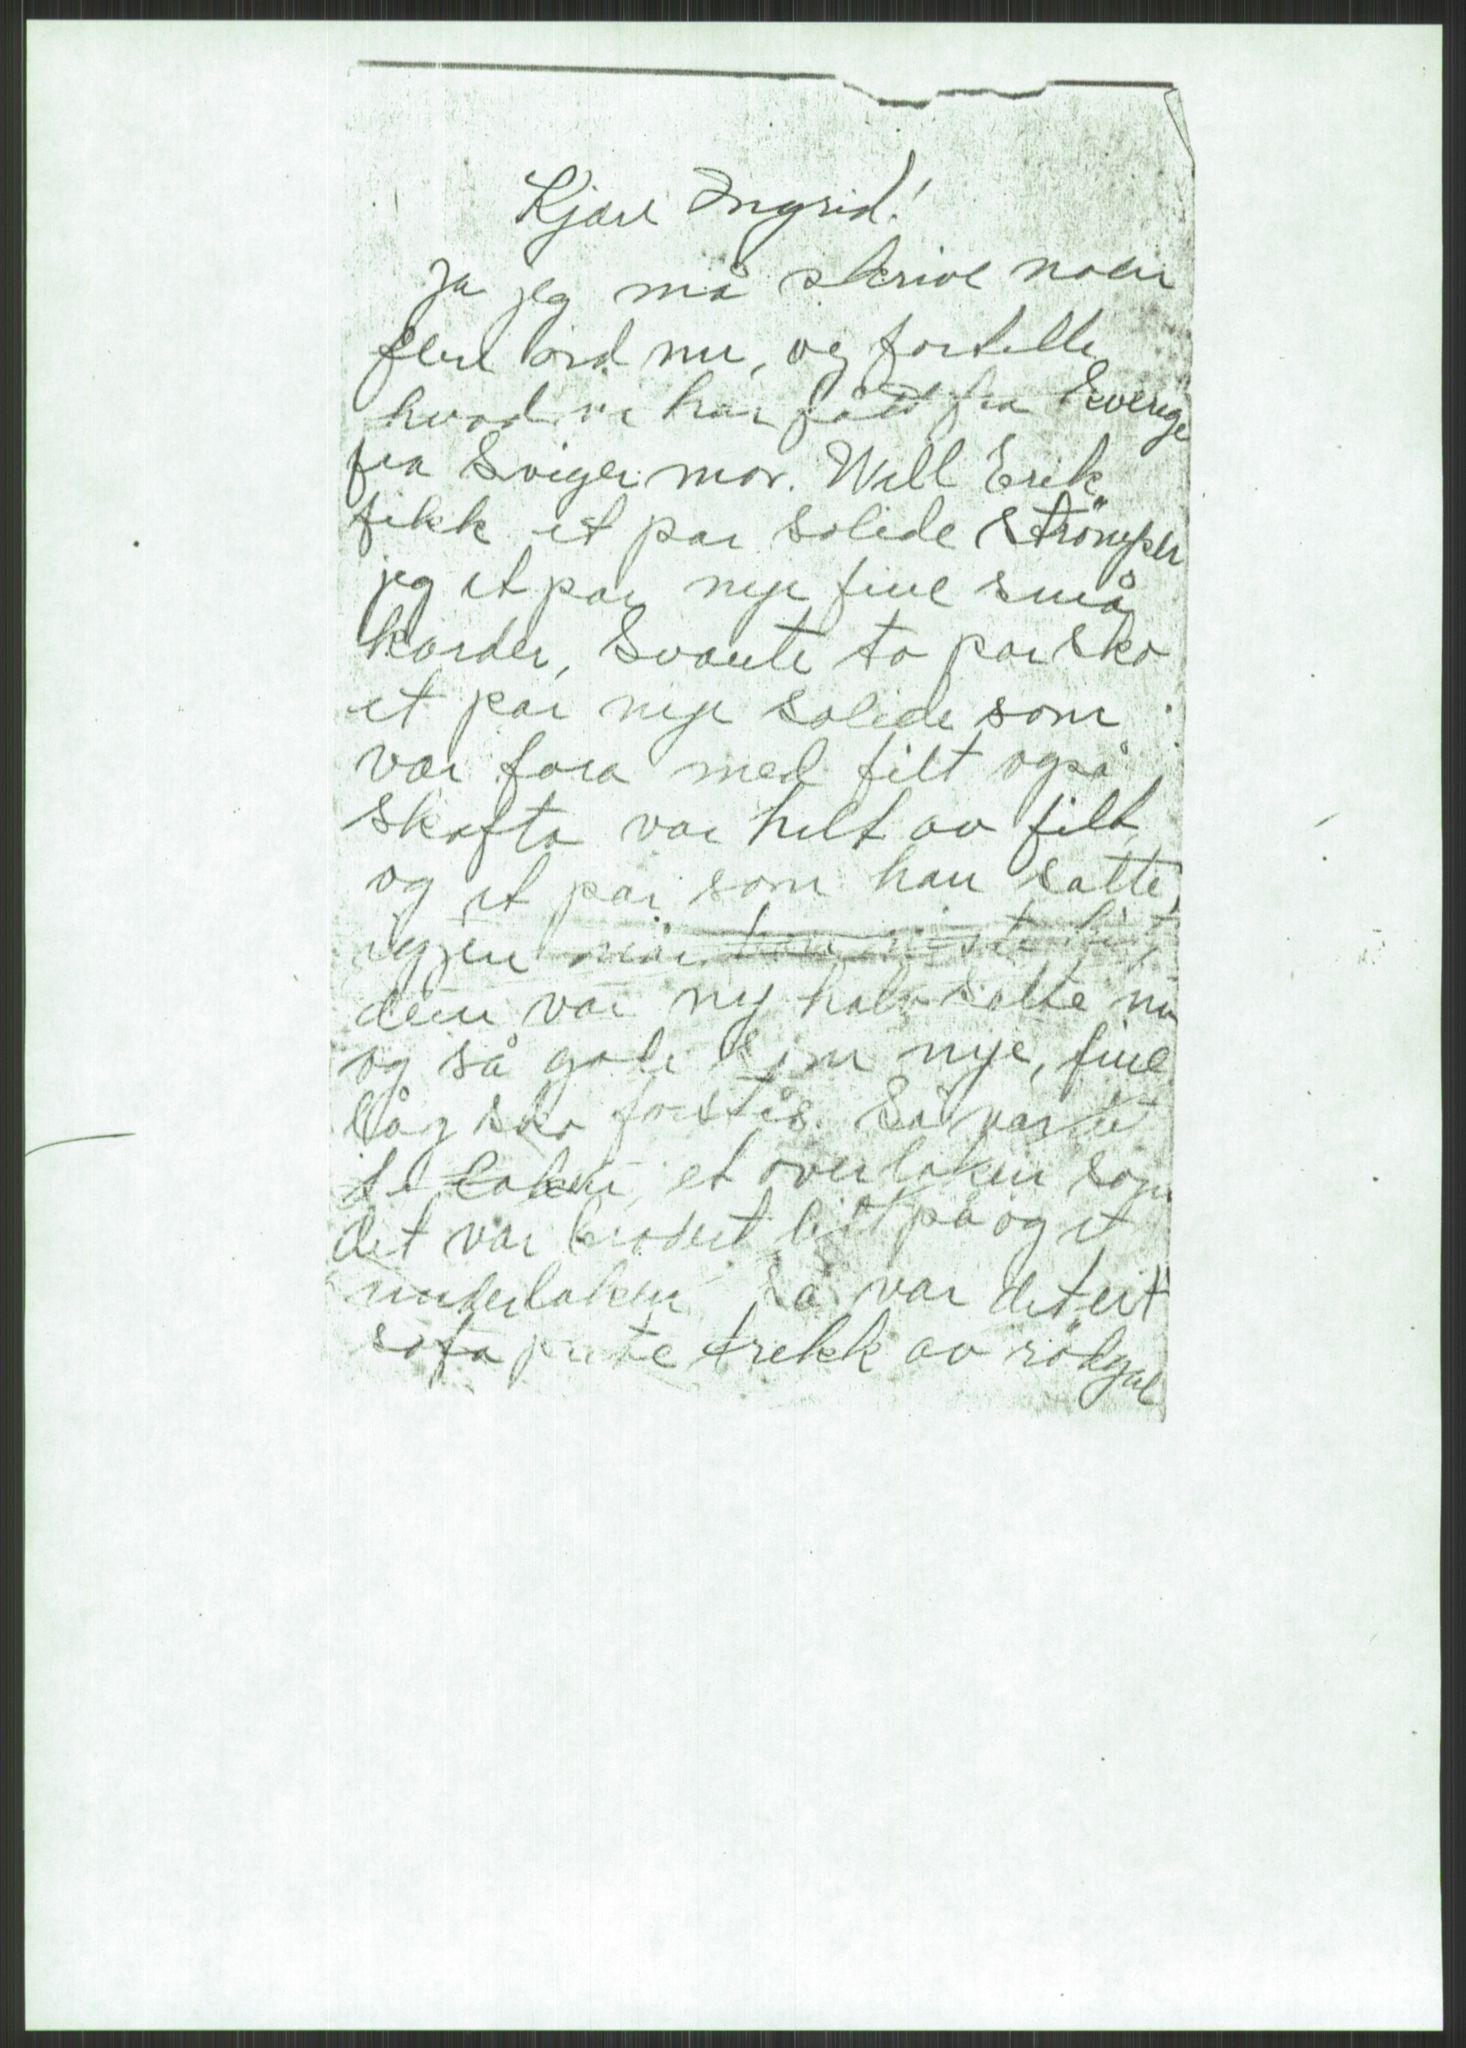 Kjære Ingrid!
Ja jeg må skrive noen
flere ord nu, og fortelle
hvad vi har fått fra Sverige
fra Sviger mor. Well Erik
fikk et par solide strömper
jeg et par nye fine små
korder, Svante to par sko
et par nye solide som
var fora med filt også
skafta var helt av filt
og et par som han satte
igjen når han reiste hit
dem var ny halvsolte nu
og så gode som nye, fine
låg sko forstås. Så var det
to laken, et overlaken som
det var brodert litt på og et
underlaken Så var det eit
sofa pute trekk av rödgul